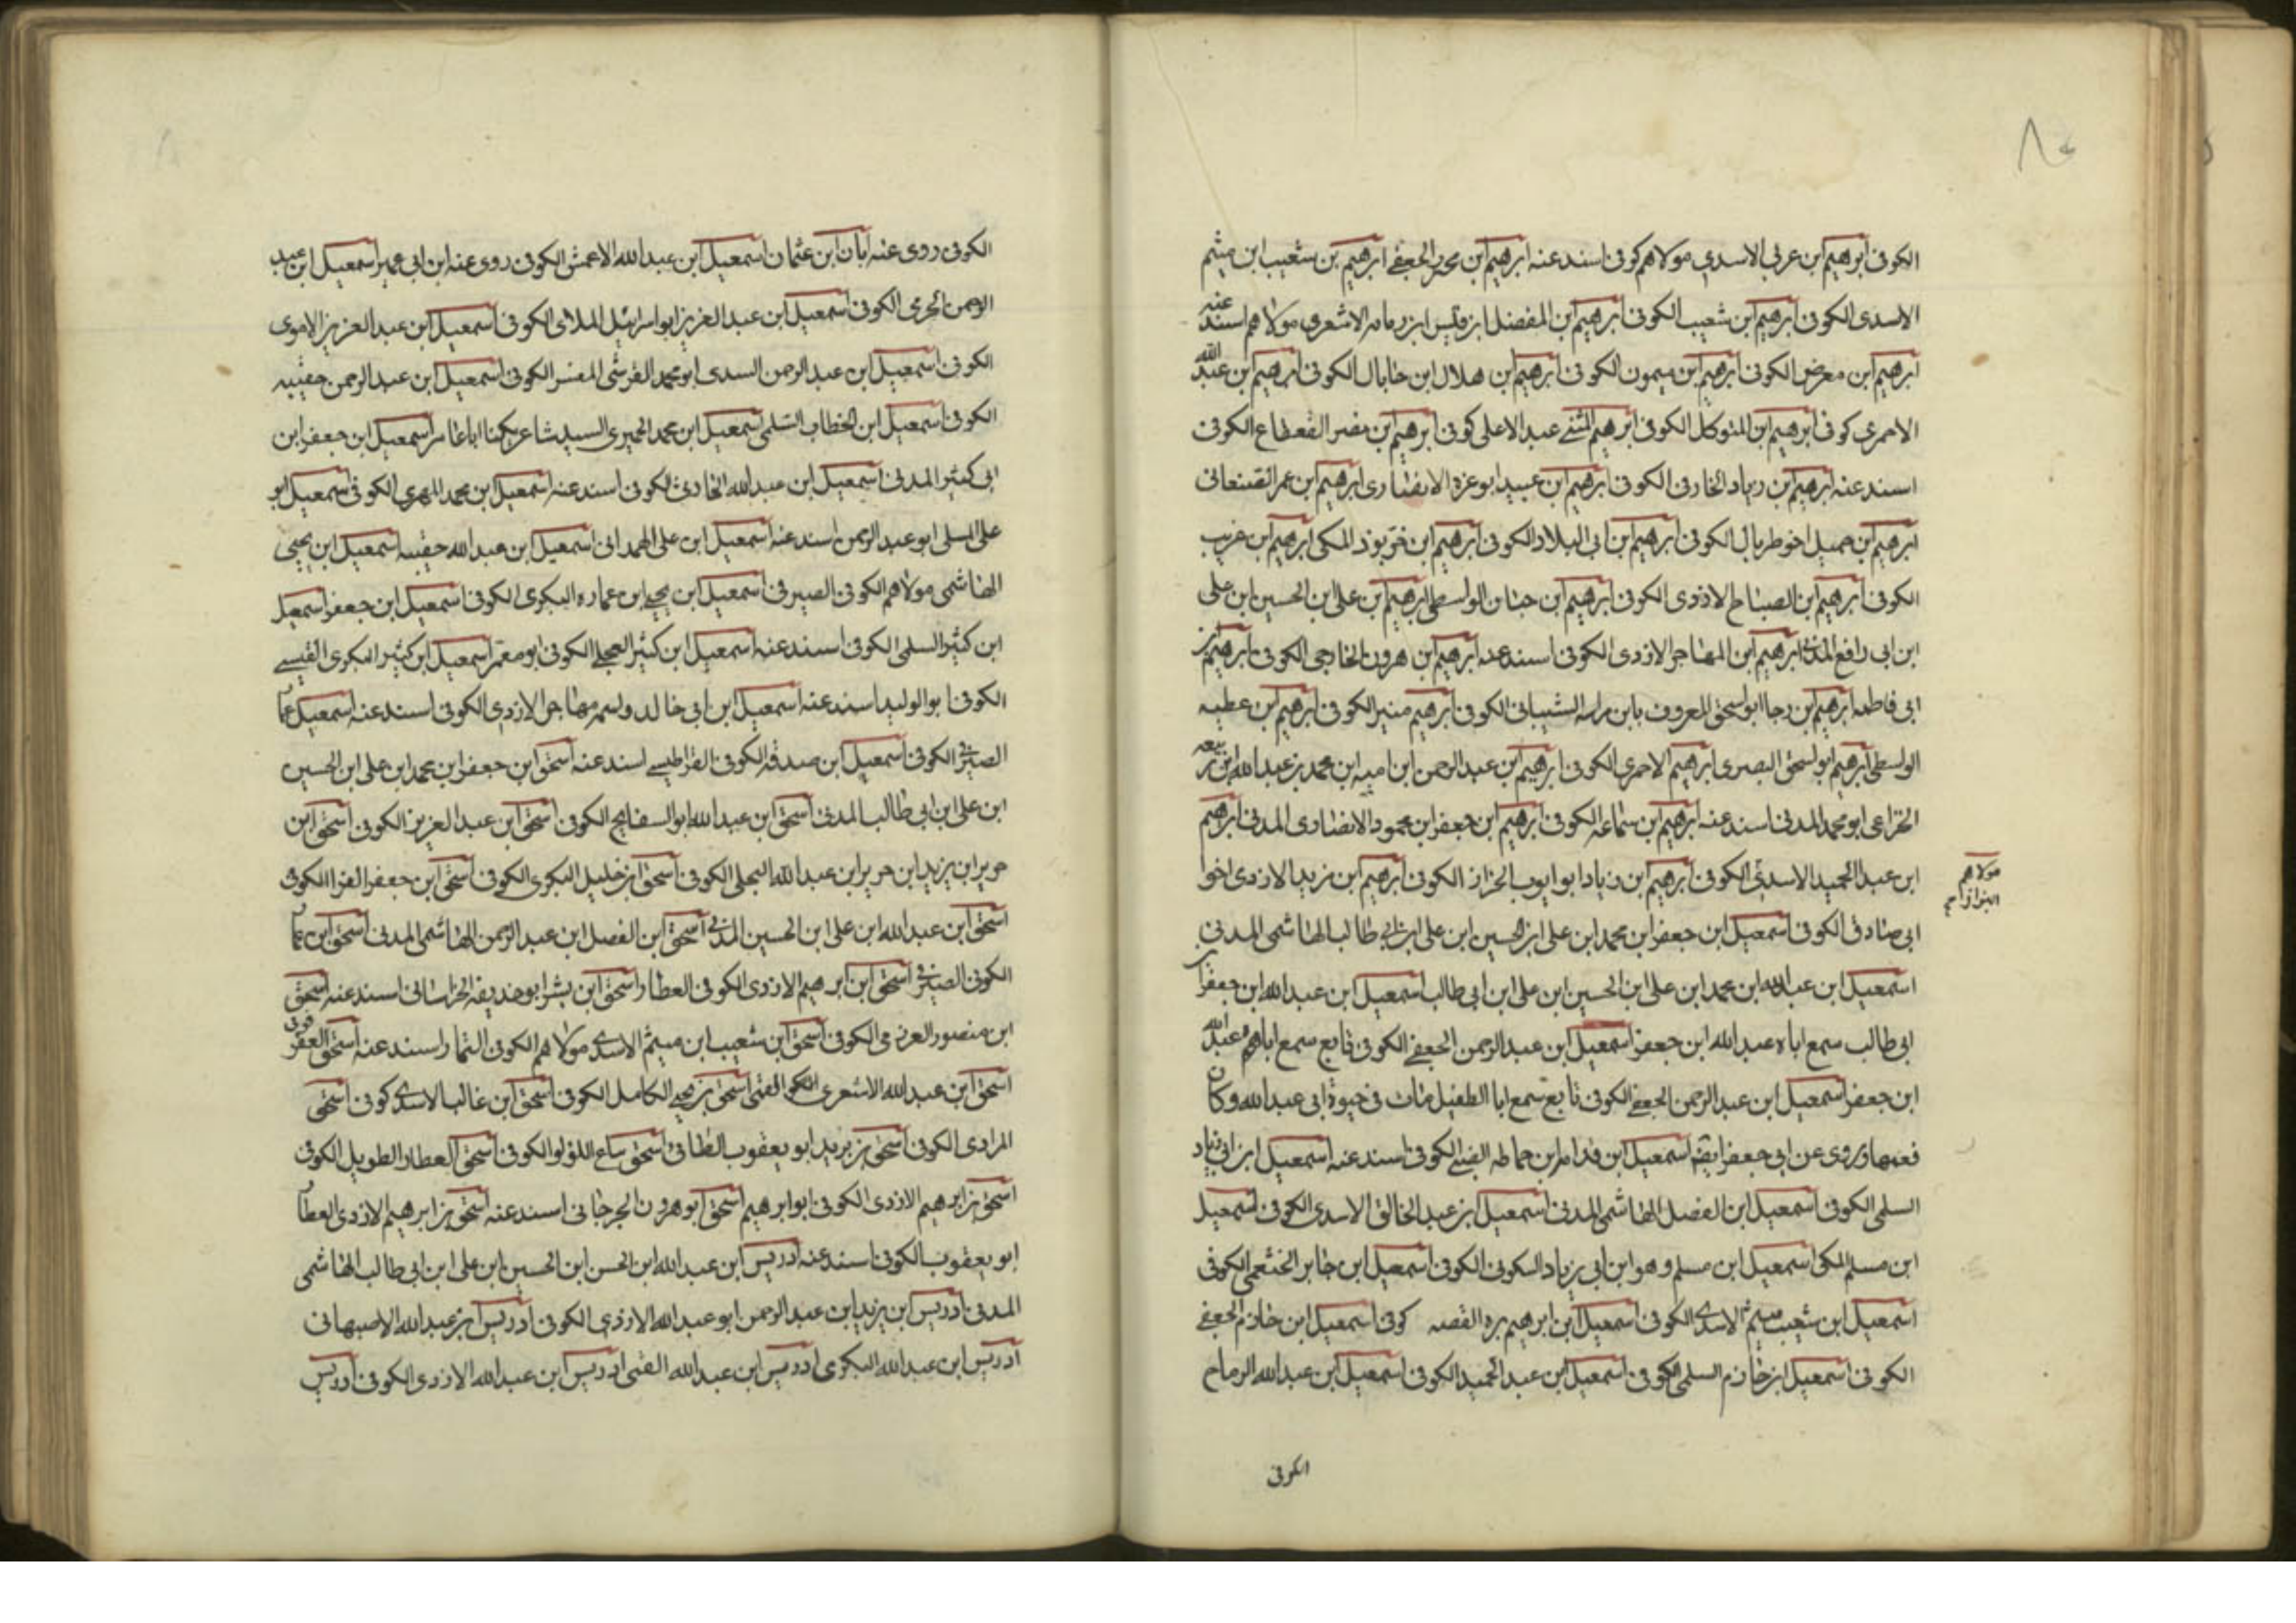 الكوفى ابرهيم ابن عربى الاسدى مولاهم كوفى اسند عنه ابرهيم ابن محمد الجعفى ابرهيم بن شعيب ابن ميثم
الاسدى الكوفى ابرهيم ابن شعيب الكوفى ابرهيم ابن المفضل ابن قيس ابن رمانه الاشعرى مولاهم اسند عنه
ابرهيم ابن معرض الكوفى ابرهيم ابن ميمون الكوفى ابرهيم بن هلال ابن جابال الكوفى ابرهيم بن عبد الله
الاحمرى كوفى ابرهيم ابن المتوكل الكوفى ابرهيم المثنى عبد الاعلى كوفى ابرهيم بن الكوفى
اسند عنه ابرهيم بن زياد الخارفى الكوفى ابرهيم بن عبيد ابو غرة الانصارى ابرهيم ابن عمر الصنعانى
ابرهيم ابن جميل اخو طربال الكوفى ابرهيم بن ابى البلاد الكوفى ابرهيم ابن خربوذ المكى ابرهيم ابن غريب
الكوفى ابرهيم ابن الصباح الازدى الكوفى ابرهيم ابن حنان الواسطى ابرهيم بن على ابن الحسين ابن على
ابن ابى رافع المدنى ابرهيم ابن المهاجر الازدى الكوفى اسند عنه ابرهيم ابن هرون الخارجى الكوفى ابرهيم بن
ابى فاطمه ابرهيم بن رجا ابو اسحق المعروف بابن هراسه الشيبانى الكوفى ابرهيم منير الكوفى ابرهيم ابن عطيه
الواسطى ابرهيم ابو اسحق البصرى ابرهيم الاحمرى الكوفى ابرهيم بن عبد الرحمن ابن اميه ابن محمد بن عبد الله ابن ربيعه
الخزاعى ابو محمد المدنى اسند عنه ابرهيم ابن سماعه الكوفى ابرهيم ابن جعفر ابن محمود الانصارى المدنى ابرهيم
ابن عبد الحميد الاسدى الكوفى ابرهيم بن زياد ابو ايوب الخزاز الكوفى ابرهيم ابن يزيد الازدى اخوا
مولاهم
البزاز
ابى صادق الكوفى اسمعيل ابن جعفر ابن محمد ابن على ابن الحسين ابن على ابن ابى طالب الهاشمى المدنى
اسمعيل ابن عبد الله ابن محمد ابن على ابن الحسين ابن على ابن ابى طالب اسمعيل ابن عبد الله ابن جعفر ابن
ابى طالب سمع اباه عبد الله ابن جعفر اسمعيل ابن عبد الرحمن الجعفى الكوفى تابع سمع اباهم عبد الله
ابن جعفر اسمعيل ابن عبد الرحمن الجعفى الكوفى تابع سمع ابا الطفيل مات فى حيوة ابى عبد الله وكان
فقيها وروى عن ابى جعفر ايضا اسمعيل ابن قدامه ابن حماطه الضبى الكوفى اسند عنه اسمعيل ابن ابى زياد
السلمى الكوفى اسمعيل ابن الفضل الهاشمى المدنى اسمعيل ابن عبد الخالق الاسدى الكوفى اسمعيل
ابن مسلم المكى اسمعيل ابن مسلم وهو ابن ابى زياد السكونى الكوفى اسمعيل ابن جابر الخثعمى الكوفى
اسمعيل ابن شعيب ميثم الاسدى الكوفى اسمعيل ابن ابرهيم بره القصير كوفى اسمعيل ابن خازم الجعفى
الكوفى اسمعيل ابن خازم السلمى الكوفى اسمعيل ابن عبد الحميد الكوفى اسمعيل ابن عبد الله الرماح
الكوفى
الكوفى روى عنه ابان ابن عثمان اسمعيل ابن عبد الله الاعمش الكوفى روى عنه ابن ابى عمير اسمعيل ابن عبد
الرحمن الجرمى الكوفى اسمعيل ابن عبد العزيز ابو اسرائيل الملائى الكوفى اسمعيل ابن عبد العزيز الاموى
الكوفى اسمعيل ابن عبد الرحمن السدى ابو محمد القرشى المفسر الكوفى اسمعيل ابن عبد الرحمن حقيبه
الكوفى اسمعيل ابن الخطاب السلمى اسمعيل ابن محمد الحميرى السيد شاعر يكنا اباعامر اسمعيل ابن جعفر ابن
ابى كثير المدنى اسمعيل ابن عبد الله الحارثى الكوفى اسند عنه اسمعيل ابن محمد المهرى الكوفى اسمعيل ابو
على السلى ابو عبد الرحمن اسند عنه اسمعيل ابن على الهمدانى اسمعيل ابن عبد الله حقيبه اسمعيل ابن يحيى
الهاشمى مولاهم الكوفى الصيرفى اسمعيل ابن يحيى ابن عماره البكرى الكوفى اسمعيل ابن جعفر اسمعيل
ابن كثير السلمى الكوفى اسند عنه اسمعيل ابن كثير العجلى الكوفى ابو معمر اسمعيل ابن كثير البكرى القيسى
الكوفى ابو الوليد اسند عنه اسمعيل ابن ابى خالد ولسمر مهاجر الازدى الكوفى اسند عنه اسمعيل عمار
الصيرفى الكوفى اسمعيل ابن صدقه الكوفى القراطيسى اسند عنه اسحق ابن جعفر ابن محمد ابن على ابن الحسين
ابن على ابن ابى طالب المدنى اسحق ابن عبد الله ابو السفاتج الكوفى اسحق ابن عبد العزيز الكوفى اسحق ابن
جرير ابن يزيد ابن جرير ابن عبد الله البجلى الكوفى اسحق ابن خليل البكرى الكوفى اسحق ابن جعفر الفرا الكوفى
اسحق ابن عبد الله ابن على ابن الحسين المدنى اسحق ابن الفضل ابن عبد الرحمن الهاشمى المدنى اسحق ابن عمار
الكوفى الصيرفى اسحق ابن ابرهيم الازدى الكوفى العطار اسحق ابن بشر ابو حذيفه الخراسانى اسند عنه اسحق
ابن منصور العرزمى الكوفى اسحق ابن شعيب ابن ميثم الاسدى مولاهم الكوفى التمار اسند عنه اسحق العقرقوفى
اسحق ابن عبد الله الاشعرى الكوفى القمى اسحق بن يحيى الكامل الكوفى اسحق ابن غالب الاسدى كوفى اسحق
المرادى الكوفى اسحق بن بريد ابو يعقوب الطائى اسحق بياع اللؤلو الكوفى اسحق العطار الطويل الكوفى
اسحق بن ابرهيم الازدى الكوفى ابو ابرهيم اسحق ابو هرون الجرجانى اسند عنه اسحق بن ابرهيم الازدى العطار
ابو يعقوب الكوفى اسند عنه ادريس ابن عبد الله ابن الحسن ابن الحسين ابن على ابن ابى طالب الهاشمى
المدنى ادريس ابن يزيد ابن عبد الرحمن ابو عبد الله الازدى الكوفى ادريس ابن عبد الله الاصبهانى
ادريس ابن عبد الله البكرى ادريس ابن عبد الله القمى ادريس ابن عبد الله الازدى الكوفى ادريس